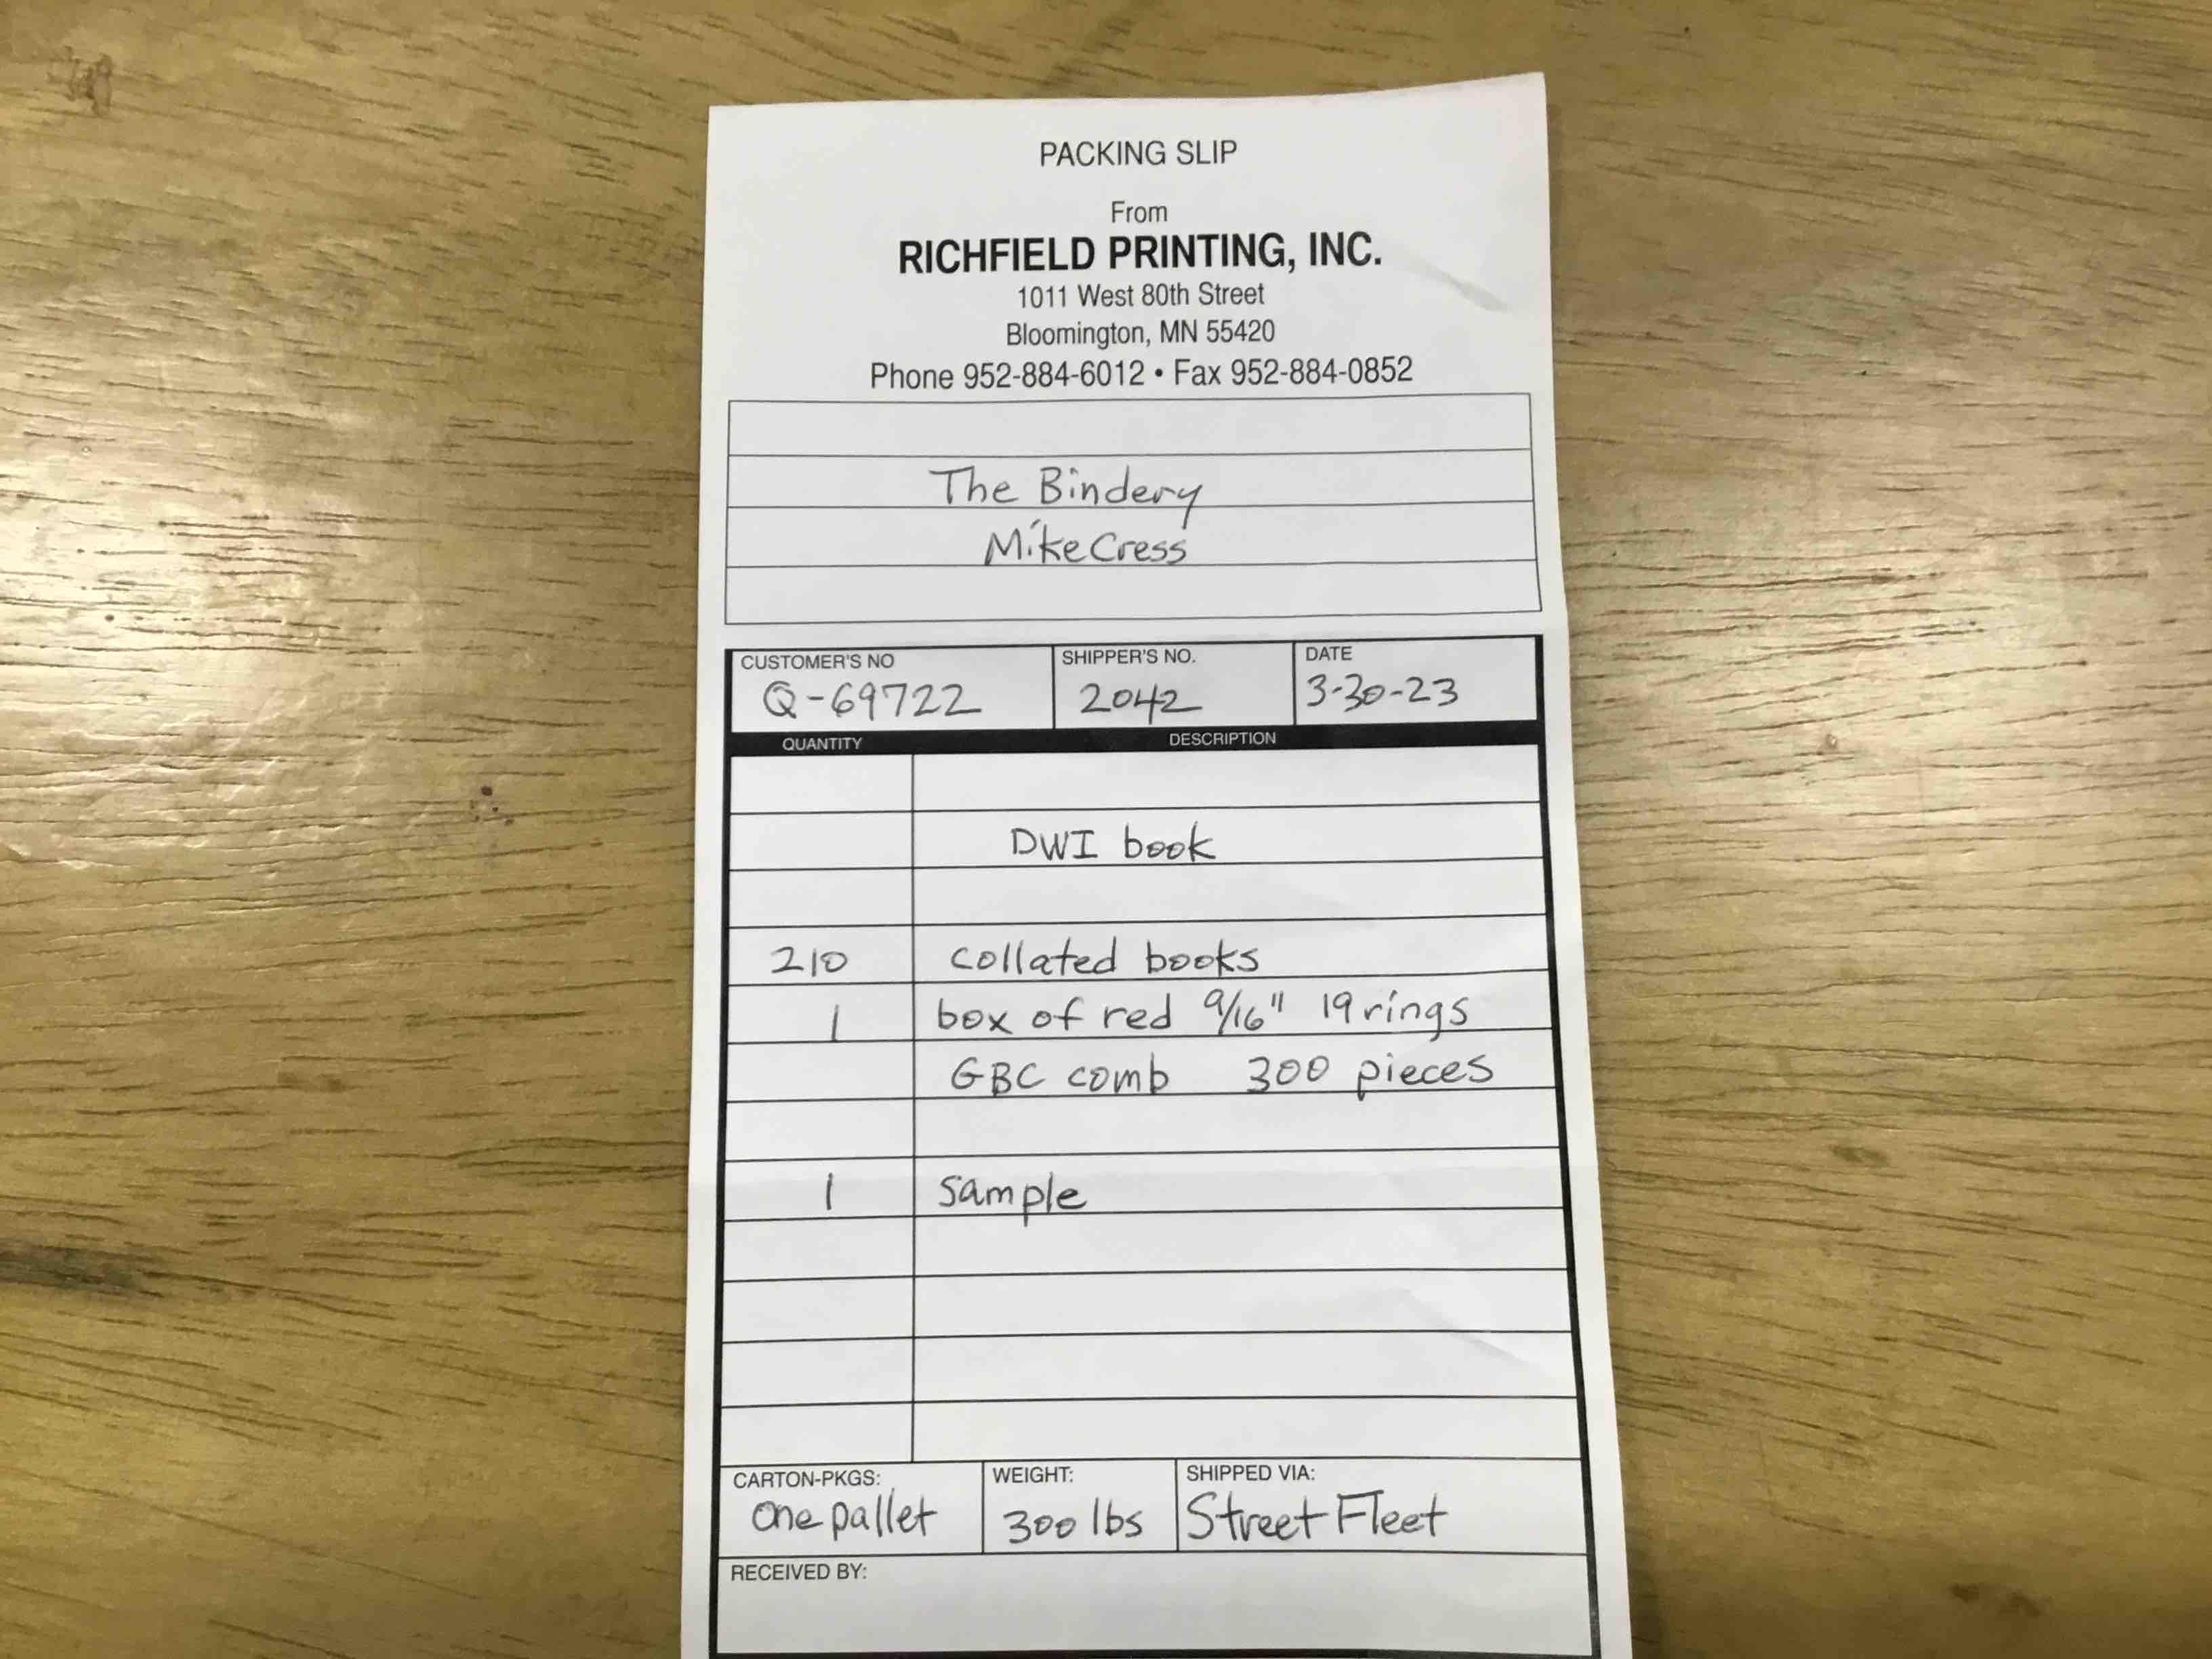 PACKING SLIP
From
RICHFIELD PRINTING, INC.
1011 West 80th Street
Bloomington, MN 55420
Phone 952-884-6012 • Fax 952-884-0852
The Bindery
Mike Cress
CUSTOMER'S NO SHIPPER'S NO. DATE
Q-69722 2042 3-30-23
QUANTITY DESCRIPTION
DWI book
210 collated books
1 box of red 9/16" 19 rings
GBC comb 300 pieces
1 sample
CARTON-PKGS: WEIGHT: SHIPPED VIA:
one pallet 300 lbs Street Fleet
RECEIVED BY: